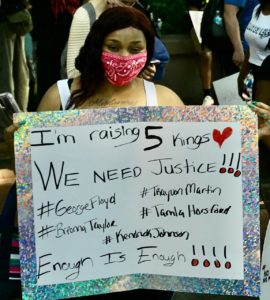 I'm raising 5 Kings ♥
WE NEED JUSTICE!!!
#GeorgeFloyd
#Trayvon Martin
#Brionna Taylor
#Tamla Horsford
#Kendrick Johnson
Enough Is Enough!!!!